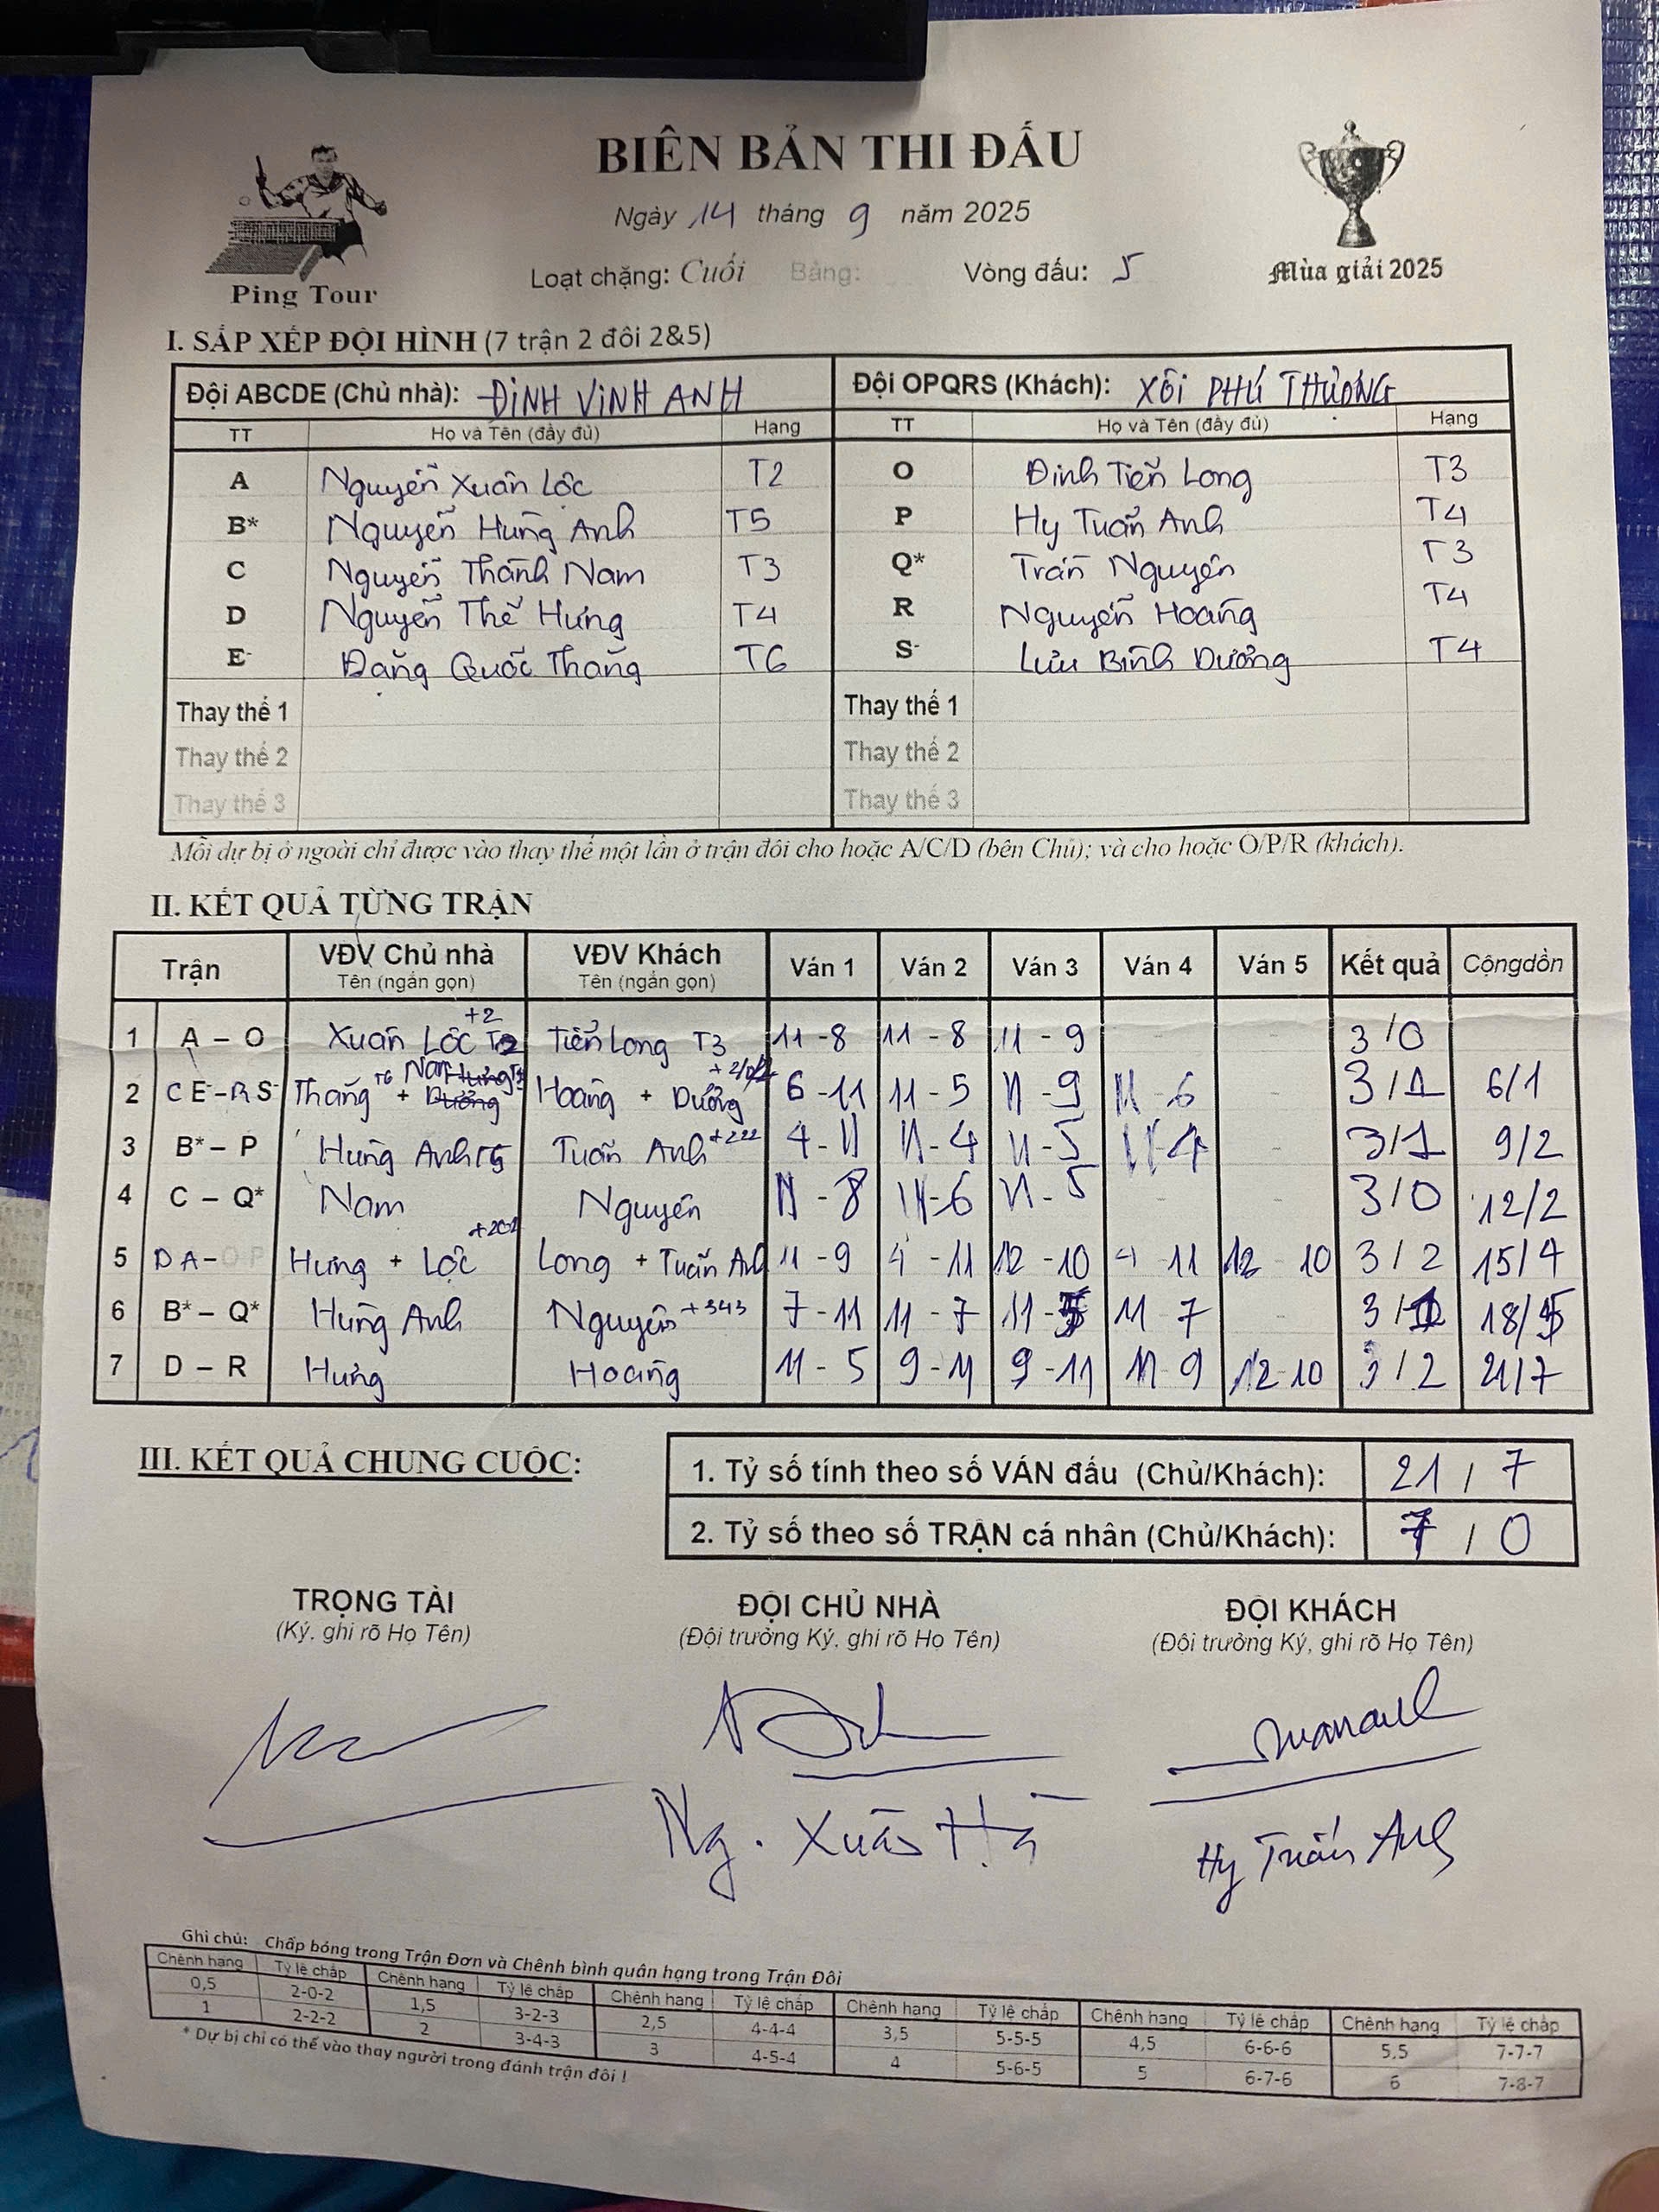 BIÊN BẢN THI ĐẤU
Ngày 14 tháng 9 năm 2025
Loạt chặng: Cuối Bảng: Vòng đấu: 5
Ping Tour
Mùa giải 2025
I. SẮP XẾP ĐỘI HÌNH (7 trận 2 đôi 2&5)
Đội ABCDE (Chủ nhà): ĐINH VINH ANH Đội OPQRS (Khách): XÔI PHÚ THƯỢNG
TT Họ và Tên (đầy đủ) Hạng TT Họ và Tên (đầy đủ) Hạng
A Nguyễn Xuân Lộc T2 O Đinh Tiến Long T3
B* Nguyễn Hùng Anh T5 P Hy Tuấn Anh T4
C Nguyễn Thành Nam T3 Q* Trần Nguyên T3
D Nguyễn Thế Hưng T4 R Nguyễn Hoàng T4
E- Đặng Quốc Thắng T6 S- Lưu Bình Dưỡng T4
Thay thế 1 Thay thế 1
Thay thế 2 Thay thế 2
Thay thế 3 Thay thế 3
Mỗi dự bị ở ngoài chỉ được vào thay thế một lần ở trận đôi cho hoặc A/C/D (bên Chủ); và cho hoặc O/P/R (khách).
II. KẾT QUẢ TỪNG TRẬN
Trận VĐV Chủ nhà VĐV Khách Ván 1 Ván 2 Ván 3 Ván 4 Ván 5 Kết quả Cộngdồn
Tên (ngắn gọn) Tên (ngắn gọn)
1 A – O Xuân Lộc T2 +2 Tiến Long T3 11 - 8 11 - 8 11 - 9 - - 3/0
2 C E--R S- Thắng T6 + Nam Hoàng + Dưỡng 6 - 11 11 - 5 11 - 9 11 - 6 - 3/1 6/1
3 B* – P Hùng Anh T5 Tuấn Anh +222 4 - 11 11 - 4 11 - 5 11 - 4 - 3/1 9/2
4 C – Q* Nam Nguyên 11 - 8 11 - 6 11 - 5 - - 3/0 12/2
5 D A – O P Hưng + Lộc +202 Long + Tuấn Anh 11 - 9 4 - 11 12 - 10 4 - 11 12 - 10 3/2 15/4
6 B* – Q* Hùng Anh Nguyên +343 7 - 11 11 - 7 11 - 5 11 - 7 - 3/1 18/5
7 D – R Hưng Hoàng 11 - 5 9 - 11 9 - 11 11 - 9 12 - 10 3/2 21/7
III. KẾT QUẢ CHUNG CUỘC:
1. Tỷ số tính theo số VÁN đấu (Chủ/Khách): 21 / 7
2. Tỷ số theo số TRẬN cá nhân (Chủ/Khách): 7 / 0
TRỌNG TÀI ĐỘI CHỦ NHÀ ĐỘI KHÁCH
(Ký, ghi rõ Họ Tên) (Đội trưởng Ký, ghi rõ Họ Tên) (Đội trưởng Ký, ghi rõ Họ Tên)
Ng. Xuân Hà
Hy Tuấn Anh
Ghi chú: Chấp bóng trong Trận Đơn và Chênh bình quân hạng trong Trận Đôi
Chênh hạng Tỷ lệ chấp Chênh hạng Tỷ lệ chấp Chênh hạng Tỷ lệ chấp Chênh hạng Tỷ lệ chấp Chênh hạng Tỷ lệ chấp Chênh hạng Tỷ lệ chấp
0,5 2-0-2 1,5 3-2-3 2,5 4-4-4 3,5 5-5-5 4,5 6-6-6 5,5 7-7-7
1 2-2-2 2 3-4-3 3 4-5-4 4 5-6-5 5 6-7-6 6 7-8-7
* Dự bị chỉ có thể vào thay người trong đánh trận đôi !